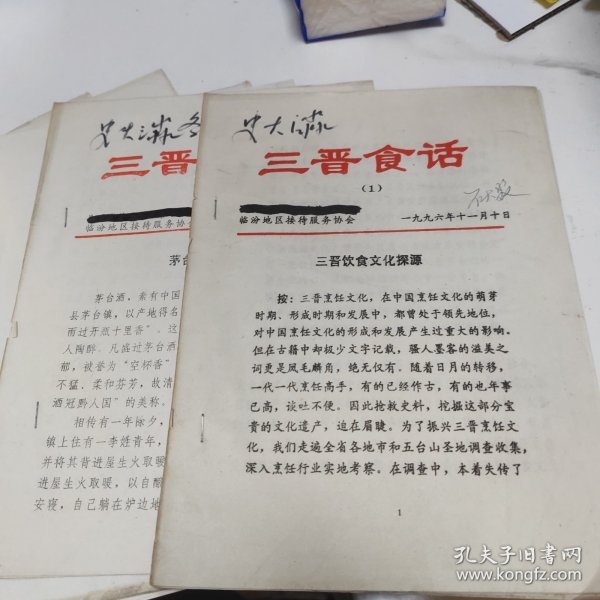 三晋食话
(1)
临汾地区接待服务协会
一九九六年十一月十日
三晋饮食文化探源
按：三晋烹饪文化，在中国烹饪文化的萌芽
时期、形成时期和发展中，都曾处于领先地位，
对中国烹饪文化的形成和发展产生过重大的影响。
但在古籍中却极少文字记载，骚人墨客的溢美之
词更是凤毛麟角，绝无仅有。随着日月的转移，
一代一代烹饪高手，有的已经作古，有的也年事
已高，谈吐不便。因此抢救史料，挖掘这部分宝
贵的文化遗产，迫在眉睫。为了振兴三晋烹饪文
化，我们走遍全省各地市和五台山圣地调查收集，
深入烹饪行业实地考察。在调查中，本着失传了
1
三晋
临汾地区接待服务协
茅台
茅台酒，素有中国
县茅台镇，以产地得名
而过开瓶十里香”。这
人陶醉。凡盛过茅台酒
郁，被誉为“空杯香”
不猛、柔和芬芳，故清
酒冠黔人国”的美称。
相传有一年除夕，
镇上住有一李姓青年，
并将其背进屋生火取暖
进屋生火取暖，以自酿
安寝，自己躺在炉边地
孔夫子旧书网
www.kongfz.com